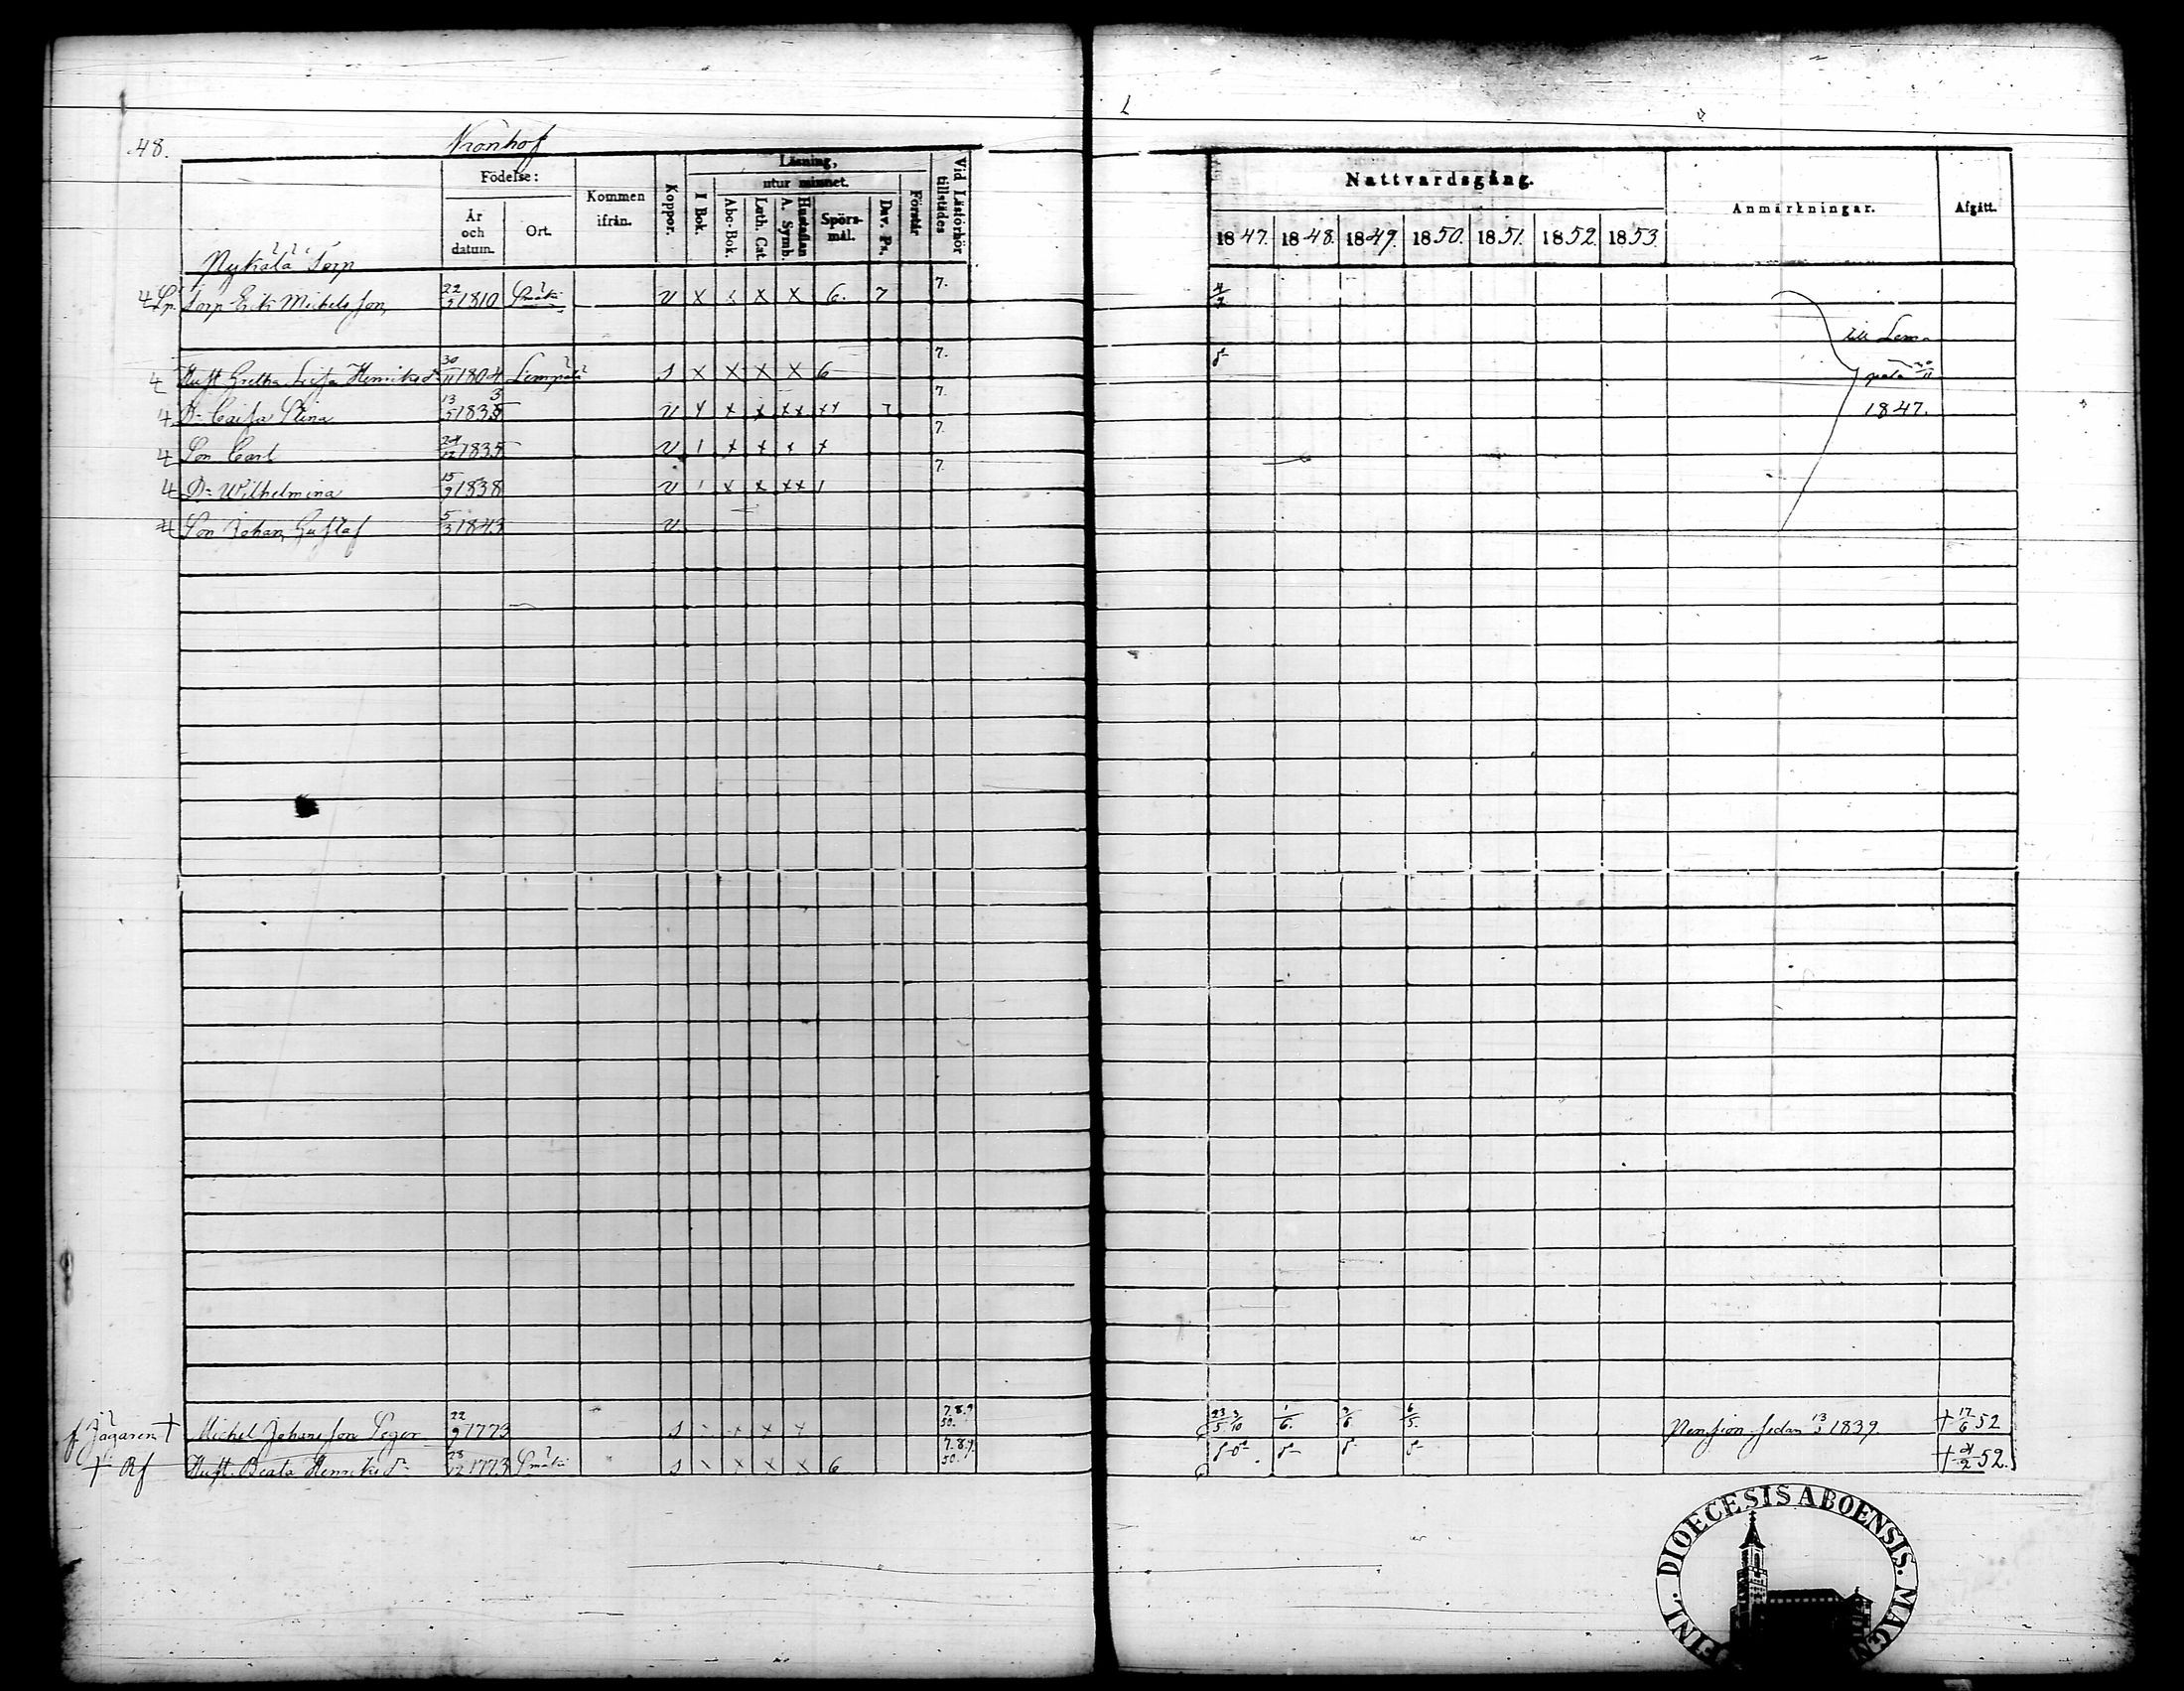 48.
Kronhof
Födelse:
År och datum.
Ort.
Kommen ifrån.
Koppor.
Läsning,
I Bok.
utur minnet.
Abc-Bok.
Luth. Cat.
Hustaflan A. Symb.
Spörs-mål.
Dav. Ps.
Förstår
Vid Läsförhör tillstädes
Nattvardsgång.
1847. 1848. 1849. 1850. 1851. 1852. 1853.
Anmärkningar.
Afgått.
Nykälä Torp
Torp Erik Michelsson 22 1810 v x x x x 6. 7 7.
till Lem-
Hust Gretha Lisa Henriksd. 30/11 1804 Lempälä s x x x x 6 7.
pälä 30/11
D. Caisa Stina 13/5 1833 v x x xx xx 7 7.
1847.
Son Carl 24/12 1835 v 1 x x x x 7.
D. Wilhelmina 15/9 1838 v 1 x x xx 1 7.
Son Johan Gustaf 5/3 1843 v
f Jägaren † Michel Johansson Seger 22/9 1773 s x x x 7.8.9 50. 23/5 3/10 1/6. 6/5. Pension sedan 13/3 1839. † 17/6 52
† Rf Hust. Beata Henriksd. 28/12 1773 s x x x 6 7.8.9. 50. † 21/2 52.
DIOECESIS ABOENSIS. MAGN
FINL.